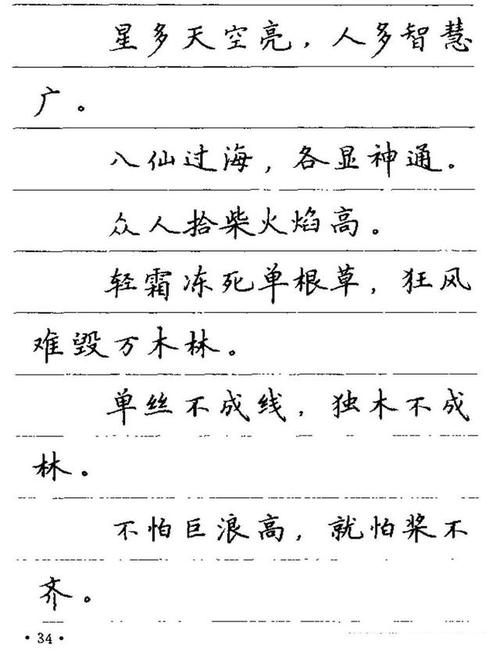 星多天空亮，人多智慧
广。
八仙过海，各显神通。
众人拾柴火焰高。
轻霜冻死单根草，狂风
难毁万木林。
单丝不成线，独木不成
林。
不怕巨浪高，就怕桨不
齐。
·34·